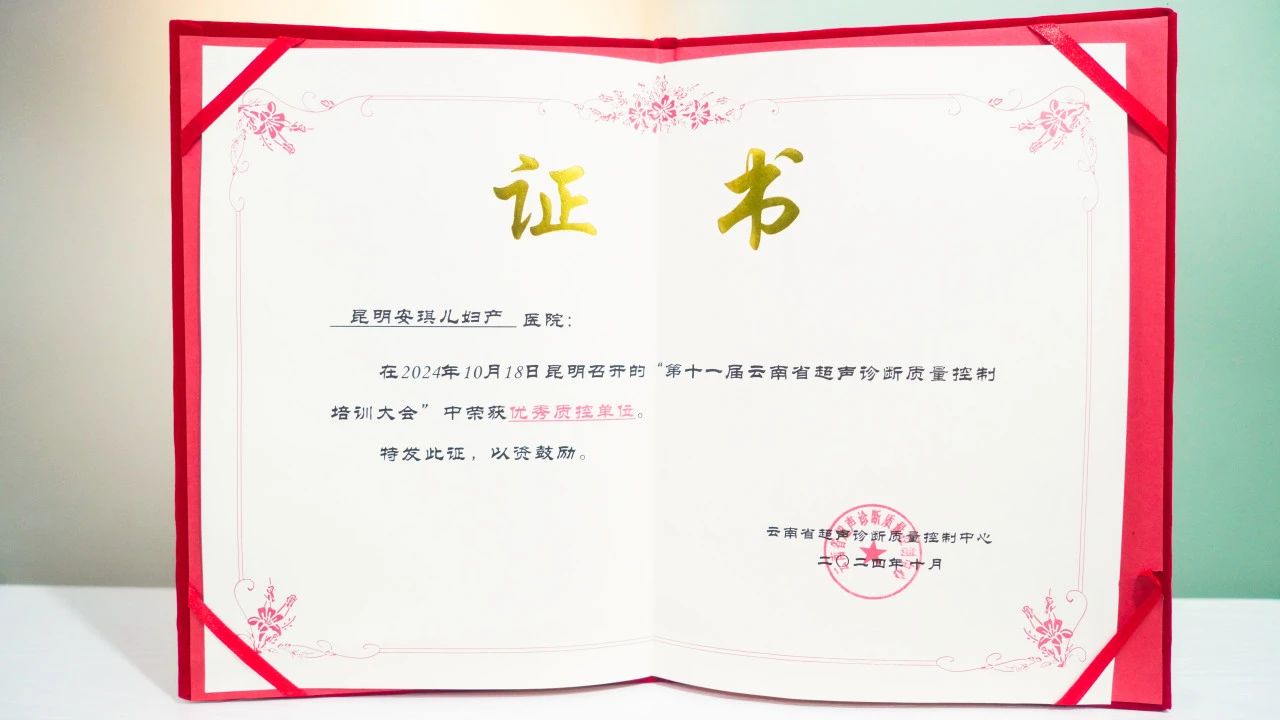 证 书
昆明安琪儿妇产 医院：
在2024年10月18日昆明召开的“第十一届云南省超声诊断质量控制
培训大会”中荣获优秀质控单位。
特发此证，以资鼓励。
云南省超声诊断质量控制中心
二〇二四年十月